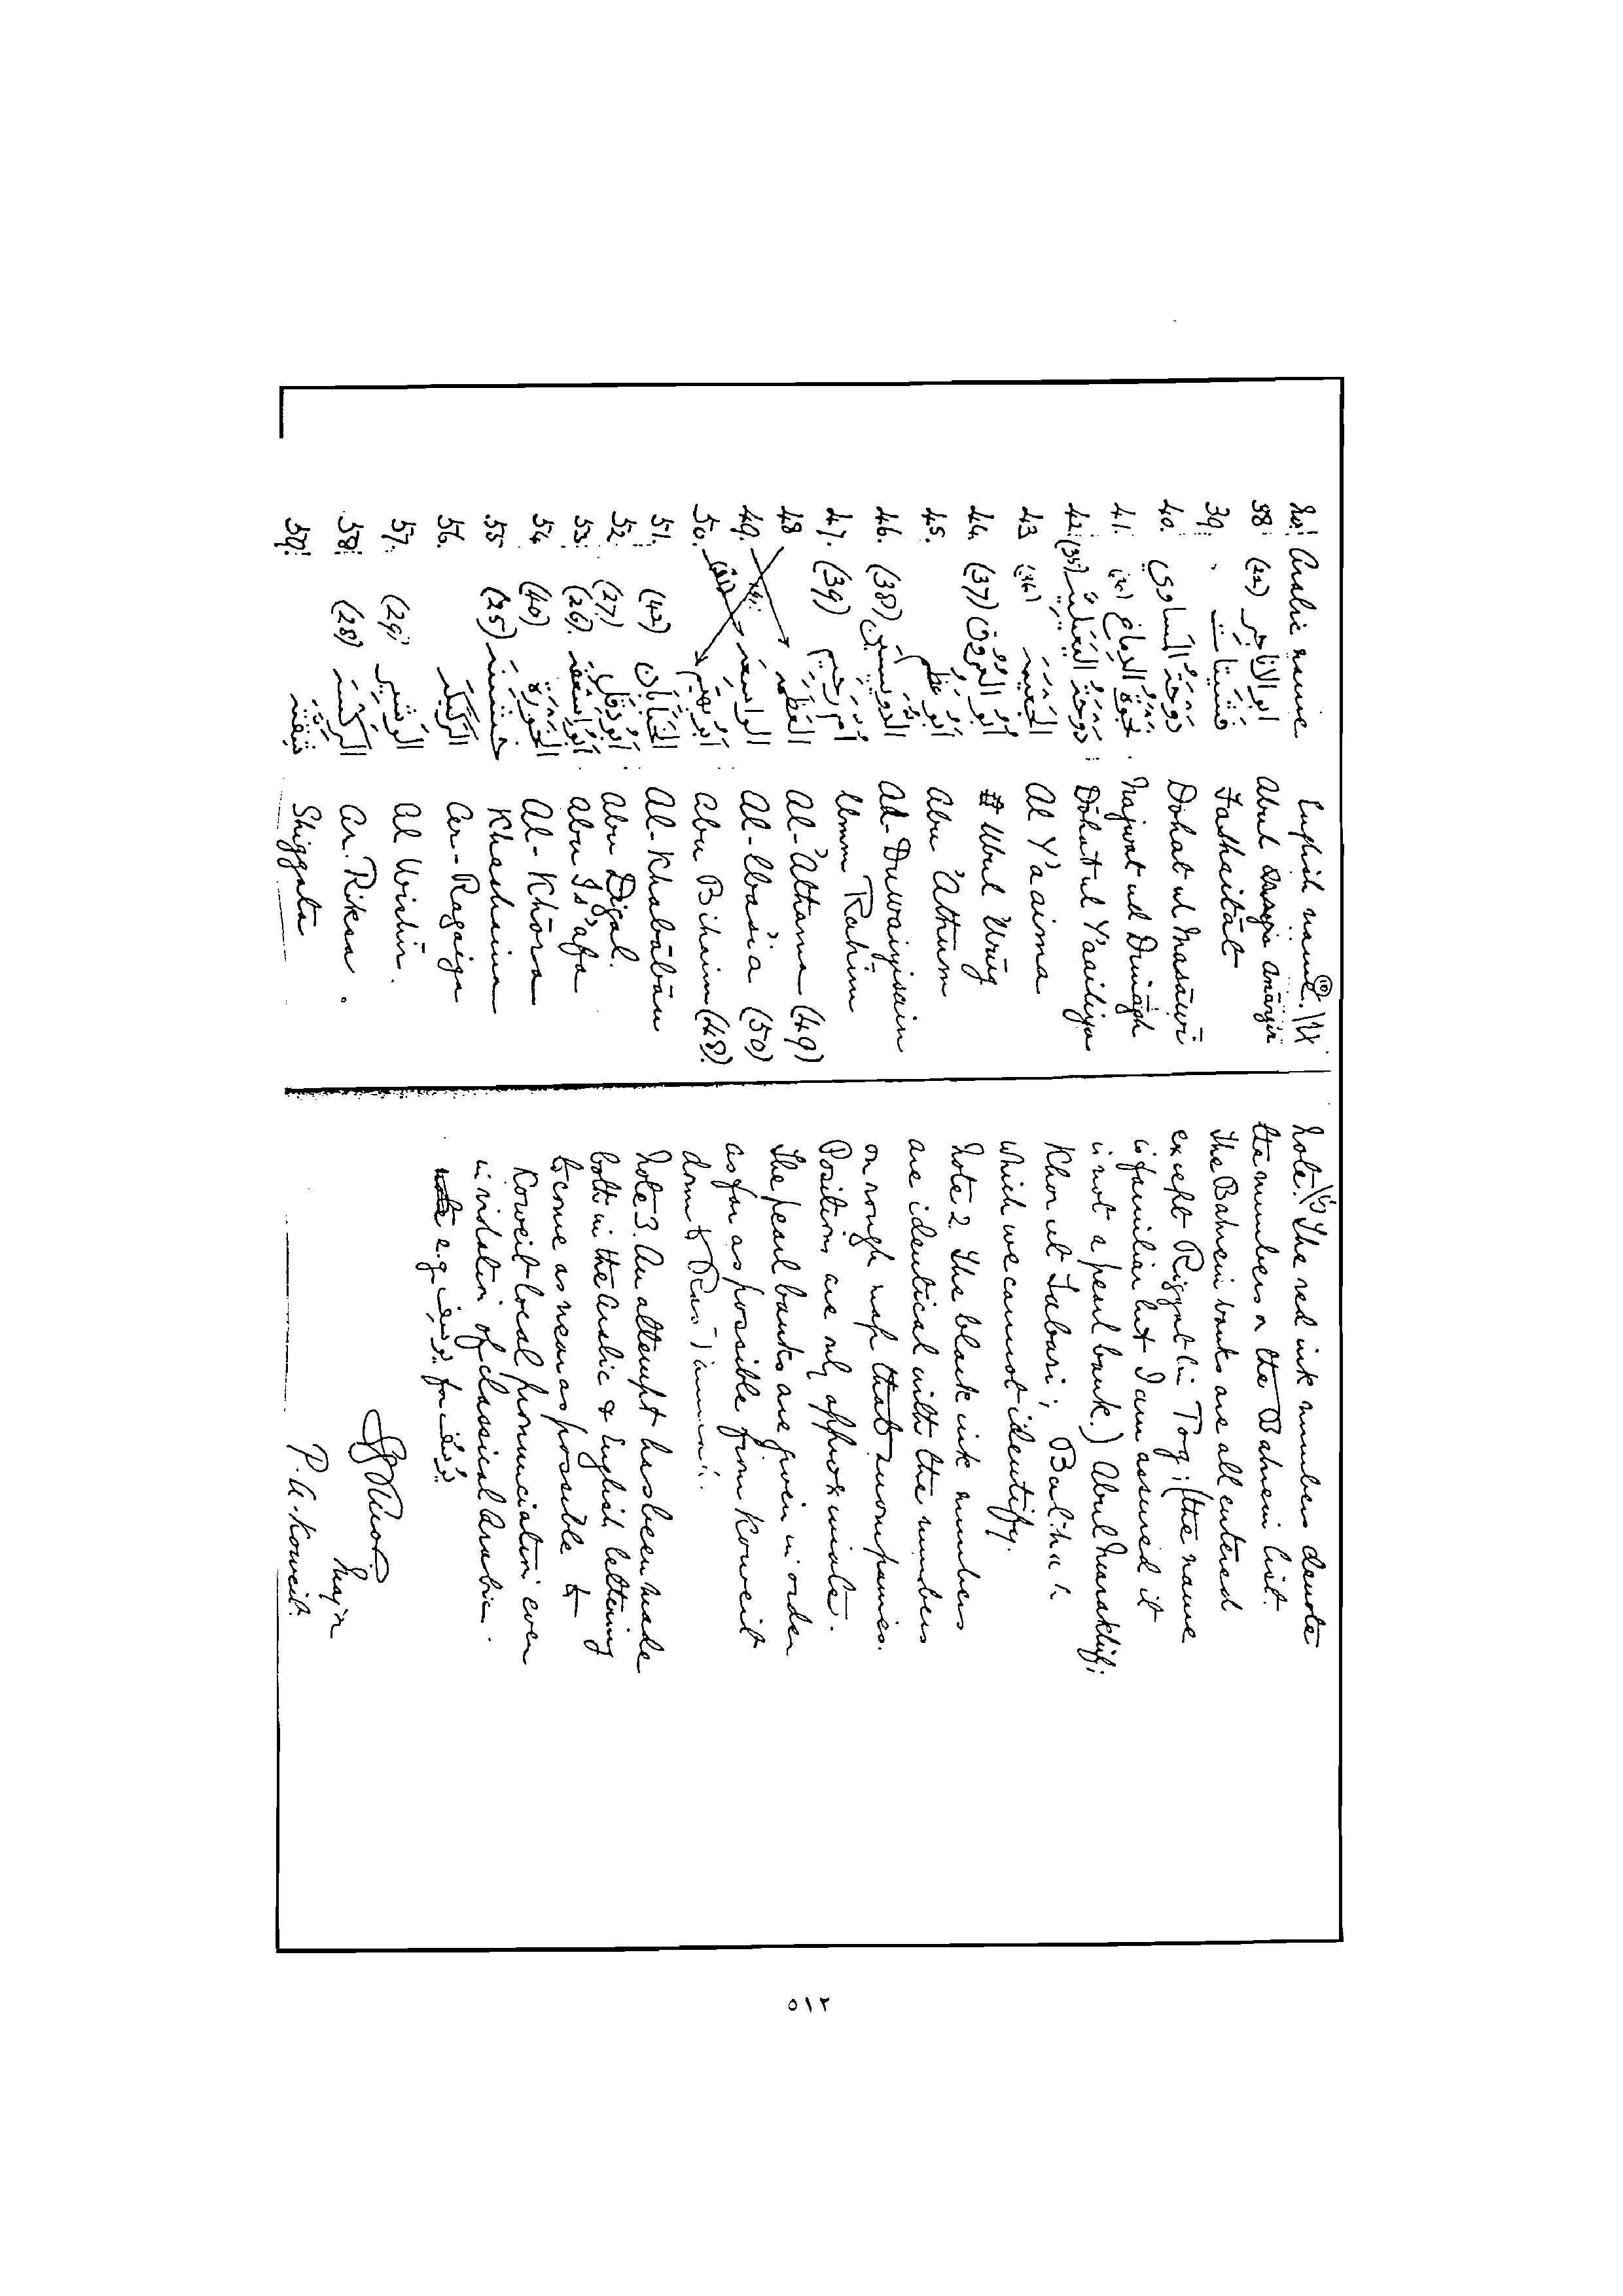 No. Arabic name English name. 10
38 (22) ابو الاناجر Abul Anājir
39. فشيتات Fashaitāt
40. دوحة المساوي Dohat ul Masāwī
41. نجوة الدماغ Najwat ud Dimāgh
42. (35) دوحة اليعليّة Dōhat ul Yaailiya
43 Al Y'aaima
44. (37) أبو العروق Ubul 'Urūg
45. أبو عظم Abu 'Athum
46. (38) الدويسين Ad-Duwaiyisain
47. (39) أم رحيم Umm Rahīm
48 العظمه Al-'Athama (49)
49. الواسعه Al-Wasi'a (50)
50. أبو بهيم Abu Bihaim (48).
51. (42) الخبابان Al-Khabābān
52. (27) أبو دقل Abu Digal.
53. (26) أبو اسعفه Abu Is'afa
54 (40) الخوره Al-Khōra
55 (25) خشينه Khashaina
56. الرگيگه Ar-Ragaiga
57. (29) الوشير Al Wishīr.
58. (28) الركسه Ar. Riksa.
59. شقته Shiggata
Note. (1) The red ink numbers denote
the numbers on the Bahrein list.
The Bahrein banks are all entered
except Rigyat bin Tog; (the name
is familiar but I am assured it
is not a pearl bank.) Abul
Khor ut
which we cannot identify.
Note 2. The black ink numbers
are identical with the numbers
on rough map that accompanies.
Positions are only approximate.
The pearl banks are given in order
as far as possible from Koweit
down to Ras
Note 3. An attempt has been made
both in the Arabic & English lettering
to come as near as possible to
Koweit local pronunciation even
in violation of classical Arabic.
e.g. for
Major
P.A. Koweit.
٥١٢